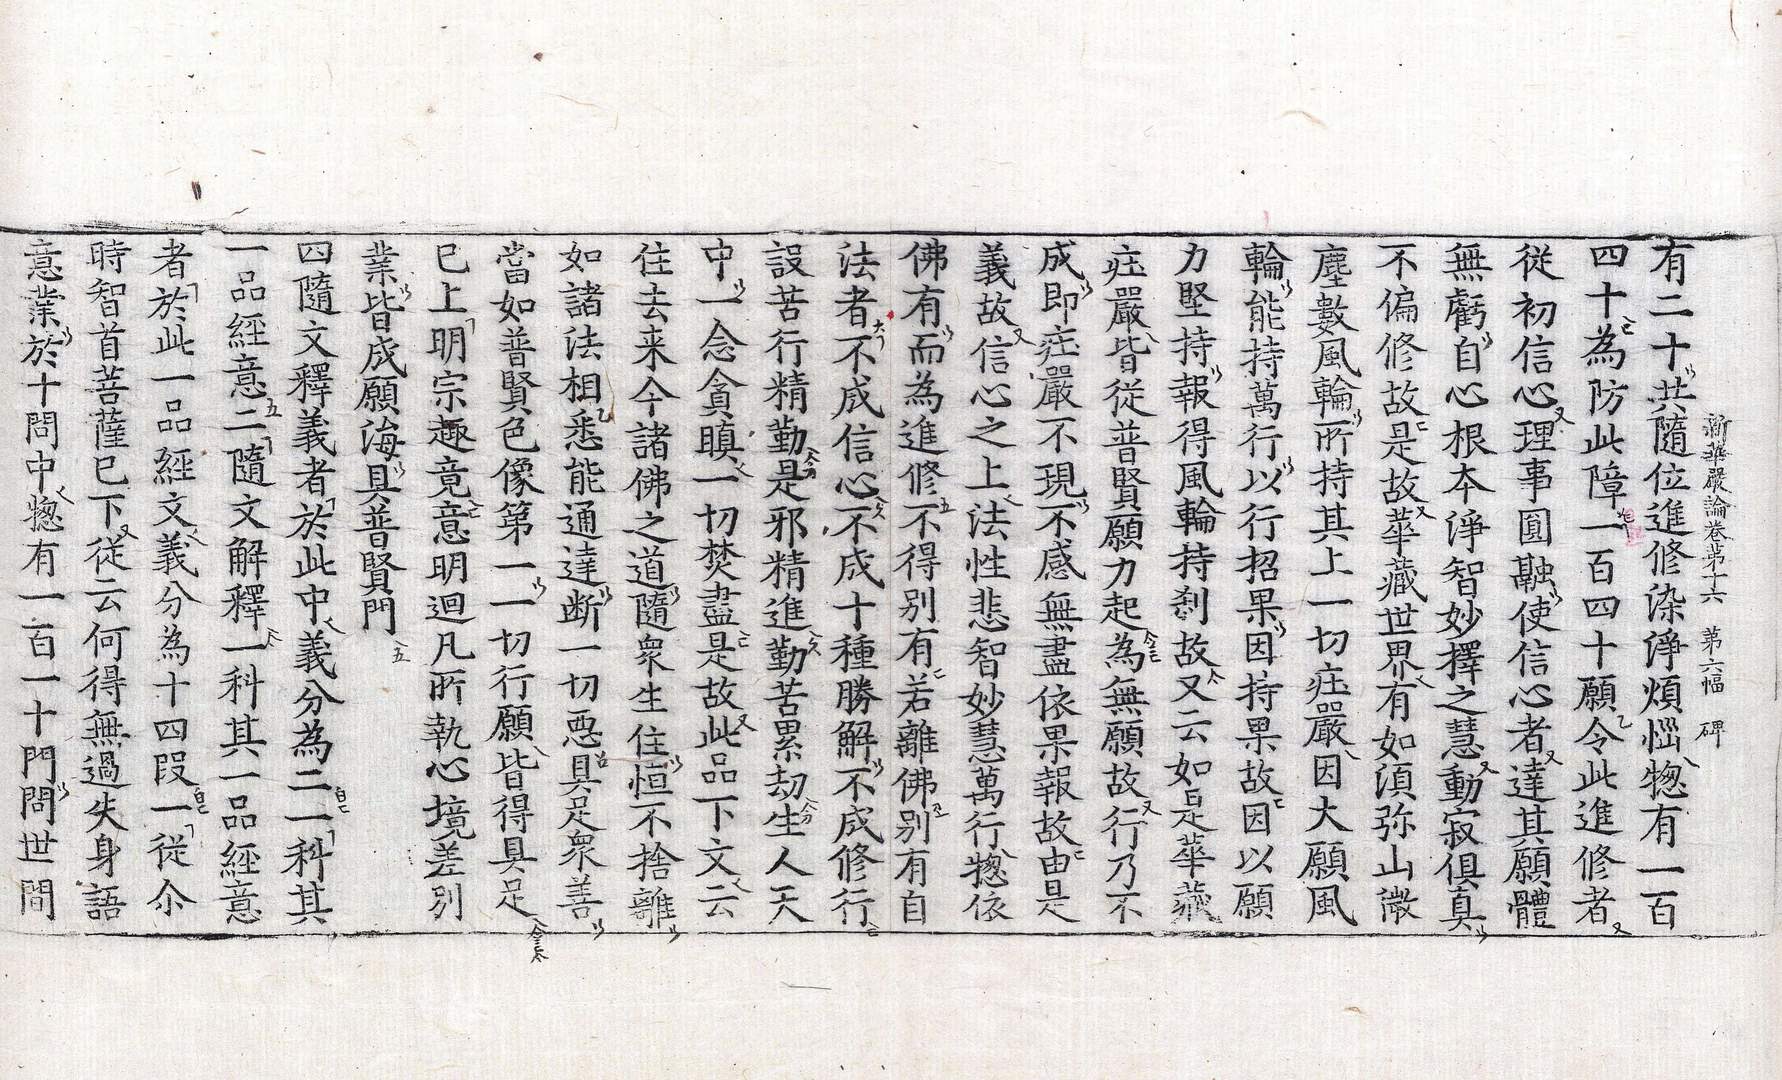 新華嚴論卷苐十六 第六幅 碑
有二十共隨位進修染淨煩惱㹅有一百
四十為防此障一百四十願令此進修者
從初信心理事圓融使信心者達其願體
無虧自心根本淨智妙擇之慧動寂俱真
不偏修故是故華藏世界有如湏弥山微
塵數風輪所持其上一切莊嚴因大願風
輪能持萬行以行招果因持果故因以願
力堅持報得風輪持刹故又云如是華藏
莊嚴皆從普賢願力起為無願故行乃不
成即莊嚴不現不感無盡依果報故由是
義故信心之上法性悲智妙慧萬行㹅依
佛有而為進修不得别有若離佛别有自
法者不成信心不成十種勝解不成修行
設苦行精勤是邪精進勤苦累劫生人天
中一念貪瞋一切焚盡是故此品下文云
住去来今諸佛之道隨衆生住恒不捨離
如諸法相悉能通達断一切惡具足衆善
當如普賢色像第一一切行願皆得具足
已上明宗趣竟意明迴凡所執心境差别
業皆成願海具普賢門
四隨文釋義者於此中義分為二一科其
一品經意二隨文解釋一科其一品經意
者於此一品經文義分為十四段一從尒
時智首菩薩已下從云何得無過失身語
意業於十問中㹅有一百一十門問世間